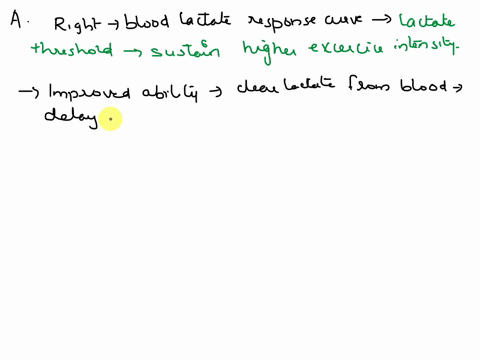 A. Right → blood lactate response curve → lactate
threshold → sustain higher excercise intensity.
→ Improved ability → clear lactate from blood →
delay